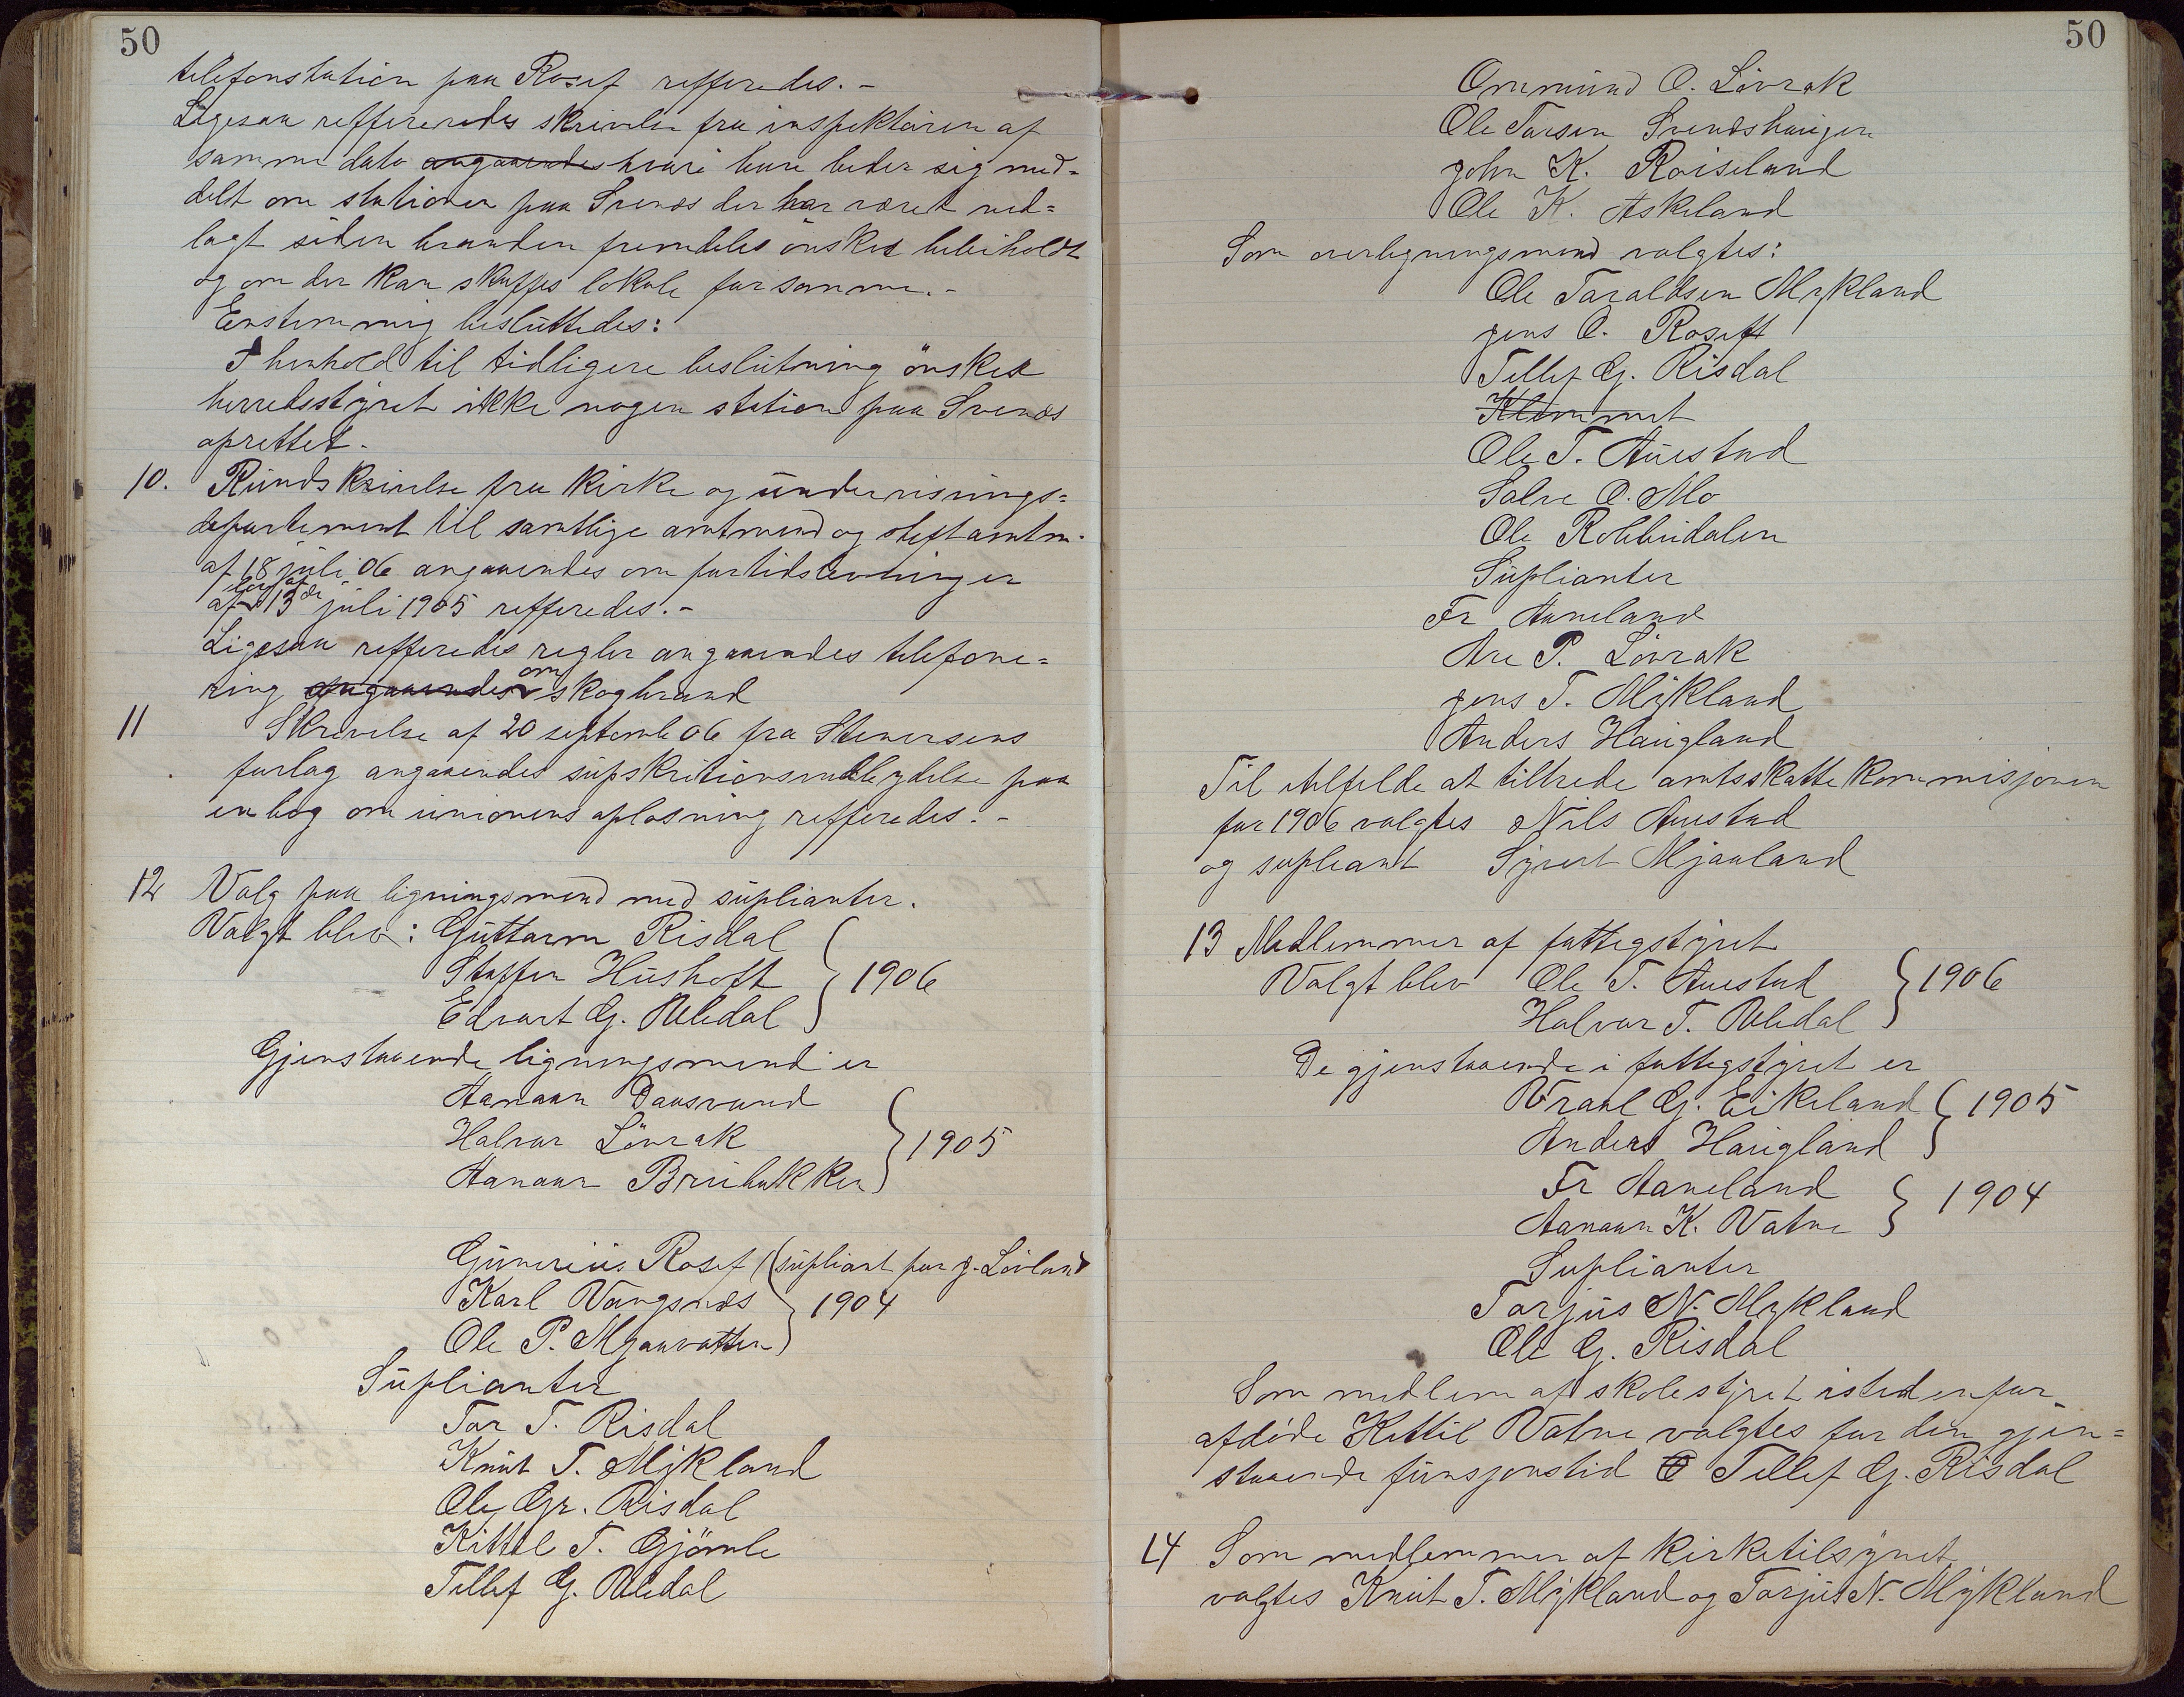 50
telefonstation paa Rosef refferedes. -
Ligesaa reffereredes skrivelse fra inspektören af
samme dato angaaendes hvori han beder sig med-
delt om stationen paa Svenes der har været ned=
lagt siden branden fremdeles önskes beibeholdt
og om der kan skaffes lokale for samme. -
Enstemmig besluttedes:
I henhold til tidligere beslutning önsker
herredsstyret ikke nogen station paa Svenes
oprettet.
10. Rundskrivelse fra Kirke og undervisnings=
departement til samtlige amtmend og stiftamtm.
af 18 juli 06 angaaendes om fortidslevninger
lov af
af 13de juli 1905 refferedes. -
Ligesaa refferedes regler angaaendes telefone=
ring angaaendes om skogbrand
11 Skrivelse af 20 septemb 06 fra Stenersens
forlag angaaendes supskritionsindbydelse paa
en bog om unionens oplösning refferedes. -
12 Valg paa ligningsmend med suplianter.
Valgt blev: Guttorm Risdal
Staffen Hushoft } 1906
Edvart G. Uledal
Gjenstaaende ligningsmend er
Aanaun Dansvand
Halvor Lövrak } 1905
Aanaun Brubakken
Gunerius Rosef (supliant for J. Lövland
Karl Vangsnes } 1904
Ole P. Mjaavatten
Suplianter
Tor T. Risdal
Knut T. Mykland
Ole Gr. Risdal
Kittel T. Gjömle
Tellef G. Uledal
50
Ommund O. Lövrak
Ole Tarsen Svendshaugen
John K. Roiseland
Ole K. Askeland
Som overligningsmend valgtes:
Ole Taraldsen Mykland
Jens O. Roseft
Tellef G. Risdal
Klemmet
Ole T. Auestad
Salve O. Mo
Ole Robbudalen
Suplianter
Fr Aaneland
Are P. Lövrak
Jens T. Mykland
Anders Haugland
Til at tiltrede amtsskattekommisjonen
for 1906 valgtes Nils Auestad
og supleant Syvert Mjaaland
13 Medlemmer af fattigstyret
Valgt blev Ole T. Auestad } 1906
Halvor T. Uledal
De gjenstaaende i fattigstyret er
Vraal G. Eikeland } 1905
Anders Haugland
Fr Aaneland } 1904
Aanaun K. Vatne
Suplianter
Tarjus N. Mykland
Ole G. Risdal
Som medlem af skolestyret istedenfor
afdöde Kittil Vatne valgtes for den gjen=
staaende funsjonstid Tellef G. Risdal
14 Som medlemmer af Kirketilsynet
valgtes Knut T. Mykland og Tarjus N. Mykland